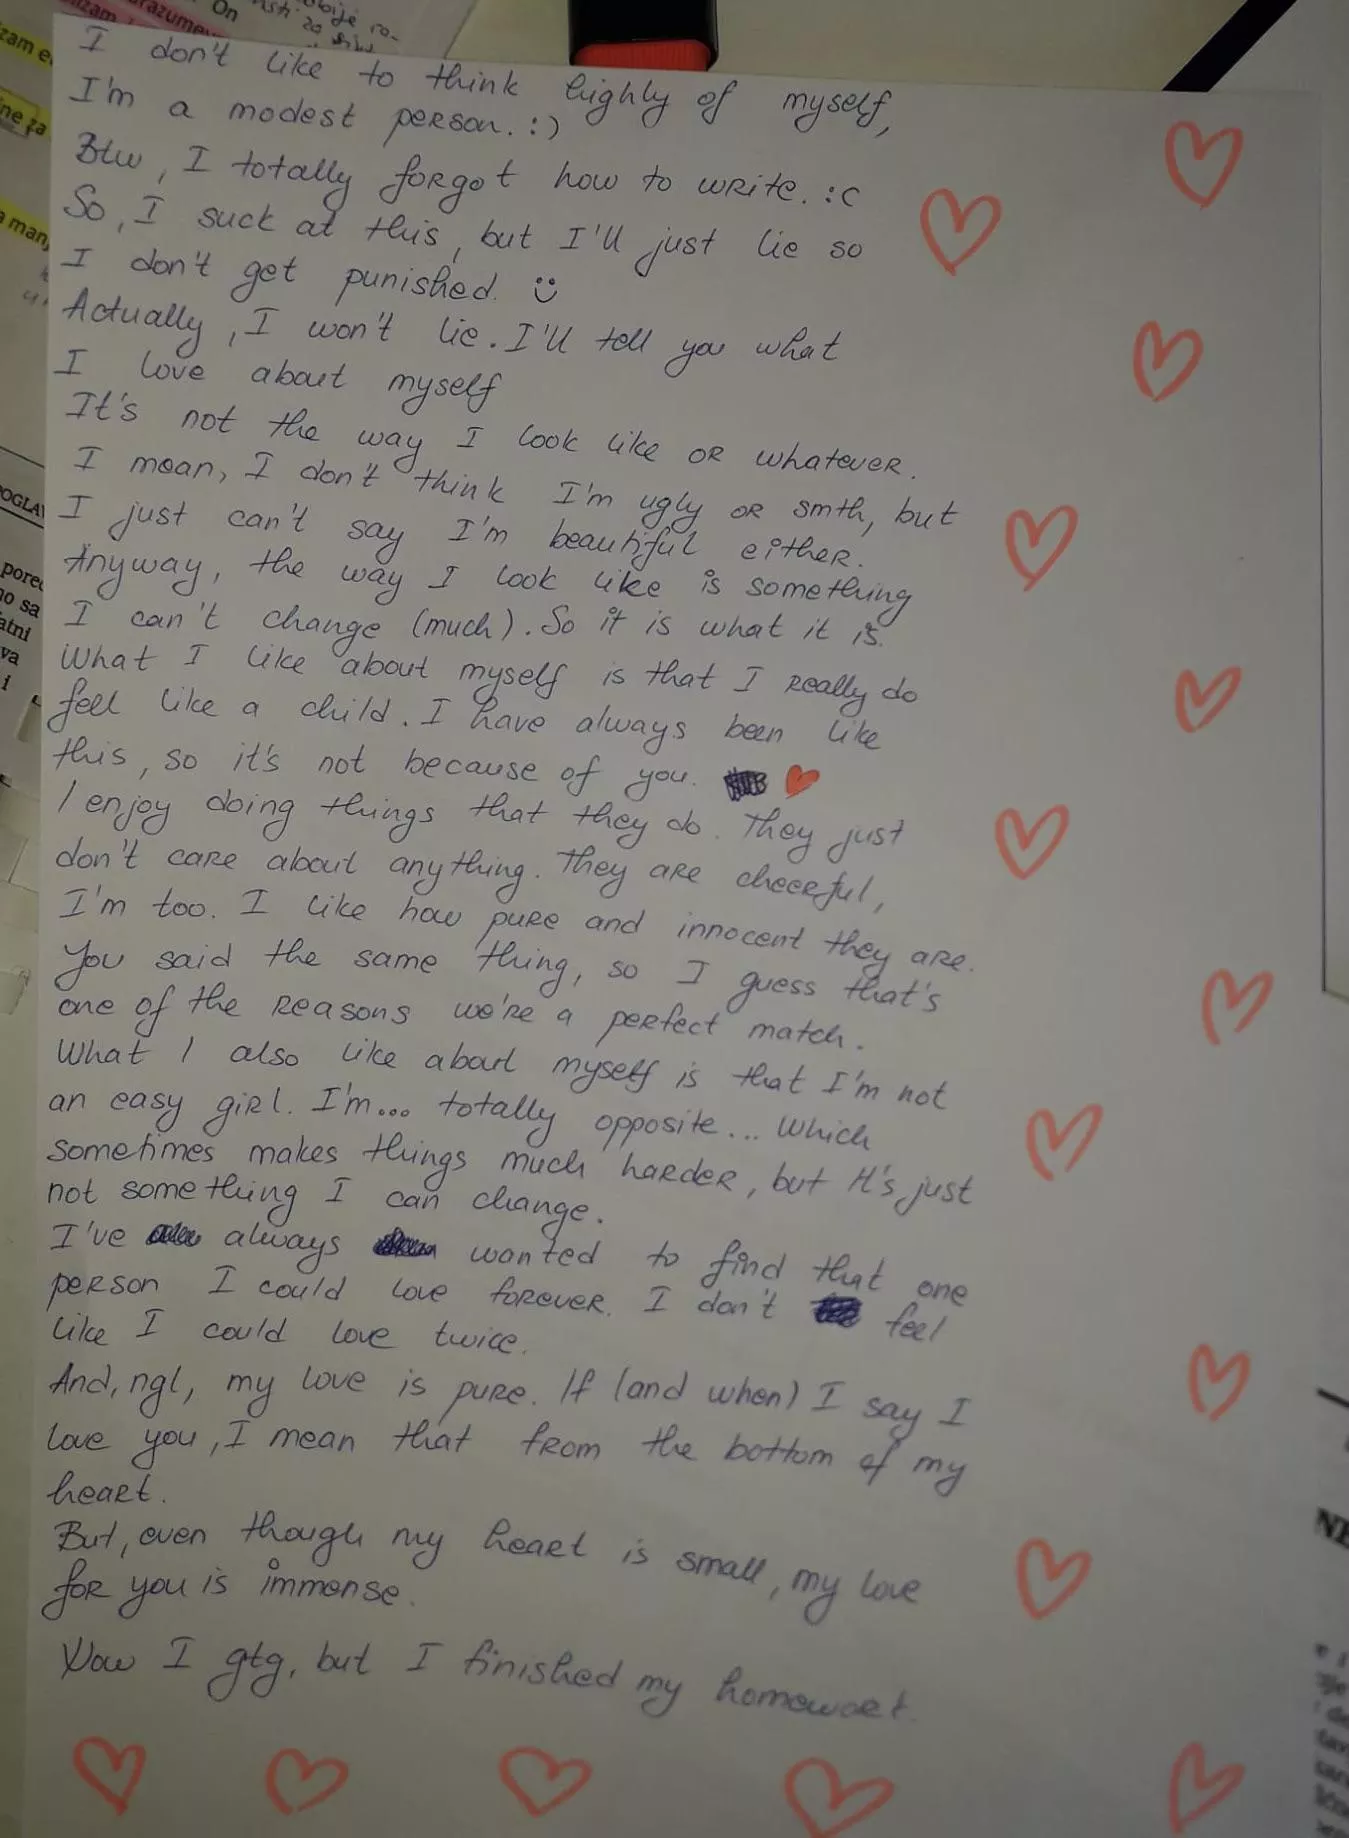 On
zam e
ne za
a manj
OGLA
pore
no sa
atni
va
i
I don't like to think highly of myself,
I'm a modest person. :)
Btw, I totally forgot how to write. :c
So, I suck at this, but I'll just lie so
I don't get punished. :)
Actually, I won't lie. I'll tell you what
I love about myself
It's not the way I look like or whatever.
I mean, I don't think I'm ugly or smth, but
I just can't say I'm beautiful either.
Anyway, the way I look like is something
I can't change (much). So it is what it is.
What I like about myself is that I really do
fell like a child. I have always been like
this, so it's not because of you. ♥
I enjoy doing things that they do. They just
don't care about anything. They are cheerful,
I'm too. I like how pure and innocent they are.
You said the same thing, so I guess that's
one of the reasons we're a perfect match.
What I also like about myself is that I'm not
an easy girl. I'm... totally opposite... Which
sometimes makes things much harder, but it's just
not something I can change.
I've always wanted to find that one
person I could love forever. I don't feel
like I could love twice.
And, ngl, my love is pure. If (and when) I say I
love you, I mean that from the bottom of my
heart.
But, even though my heart is small, my love
for you is immense.
Now I gtg, but I finished my homework.
NE